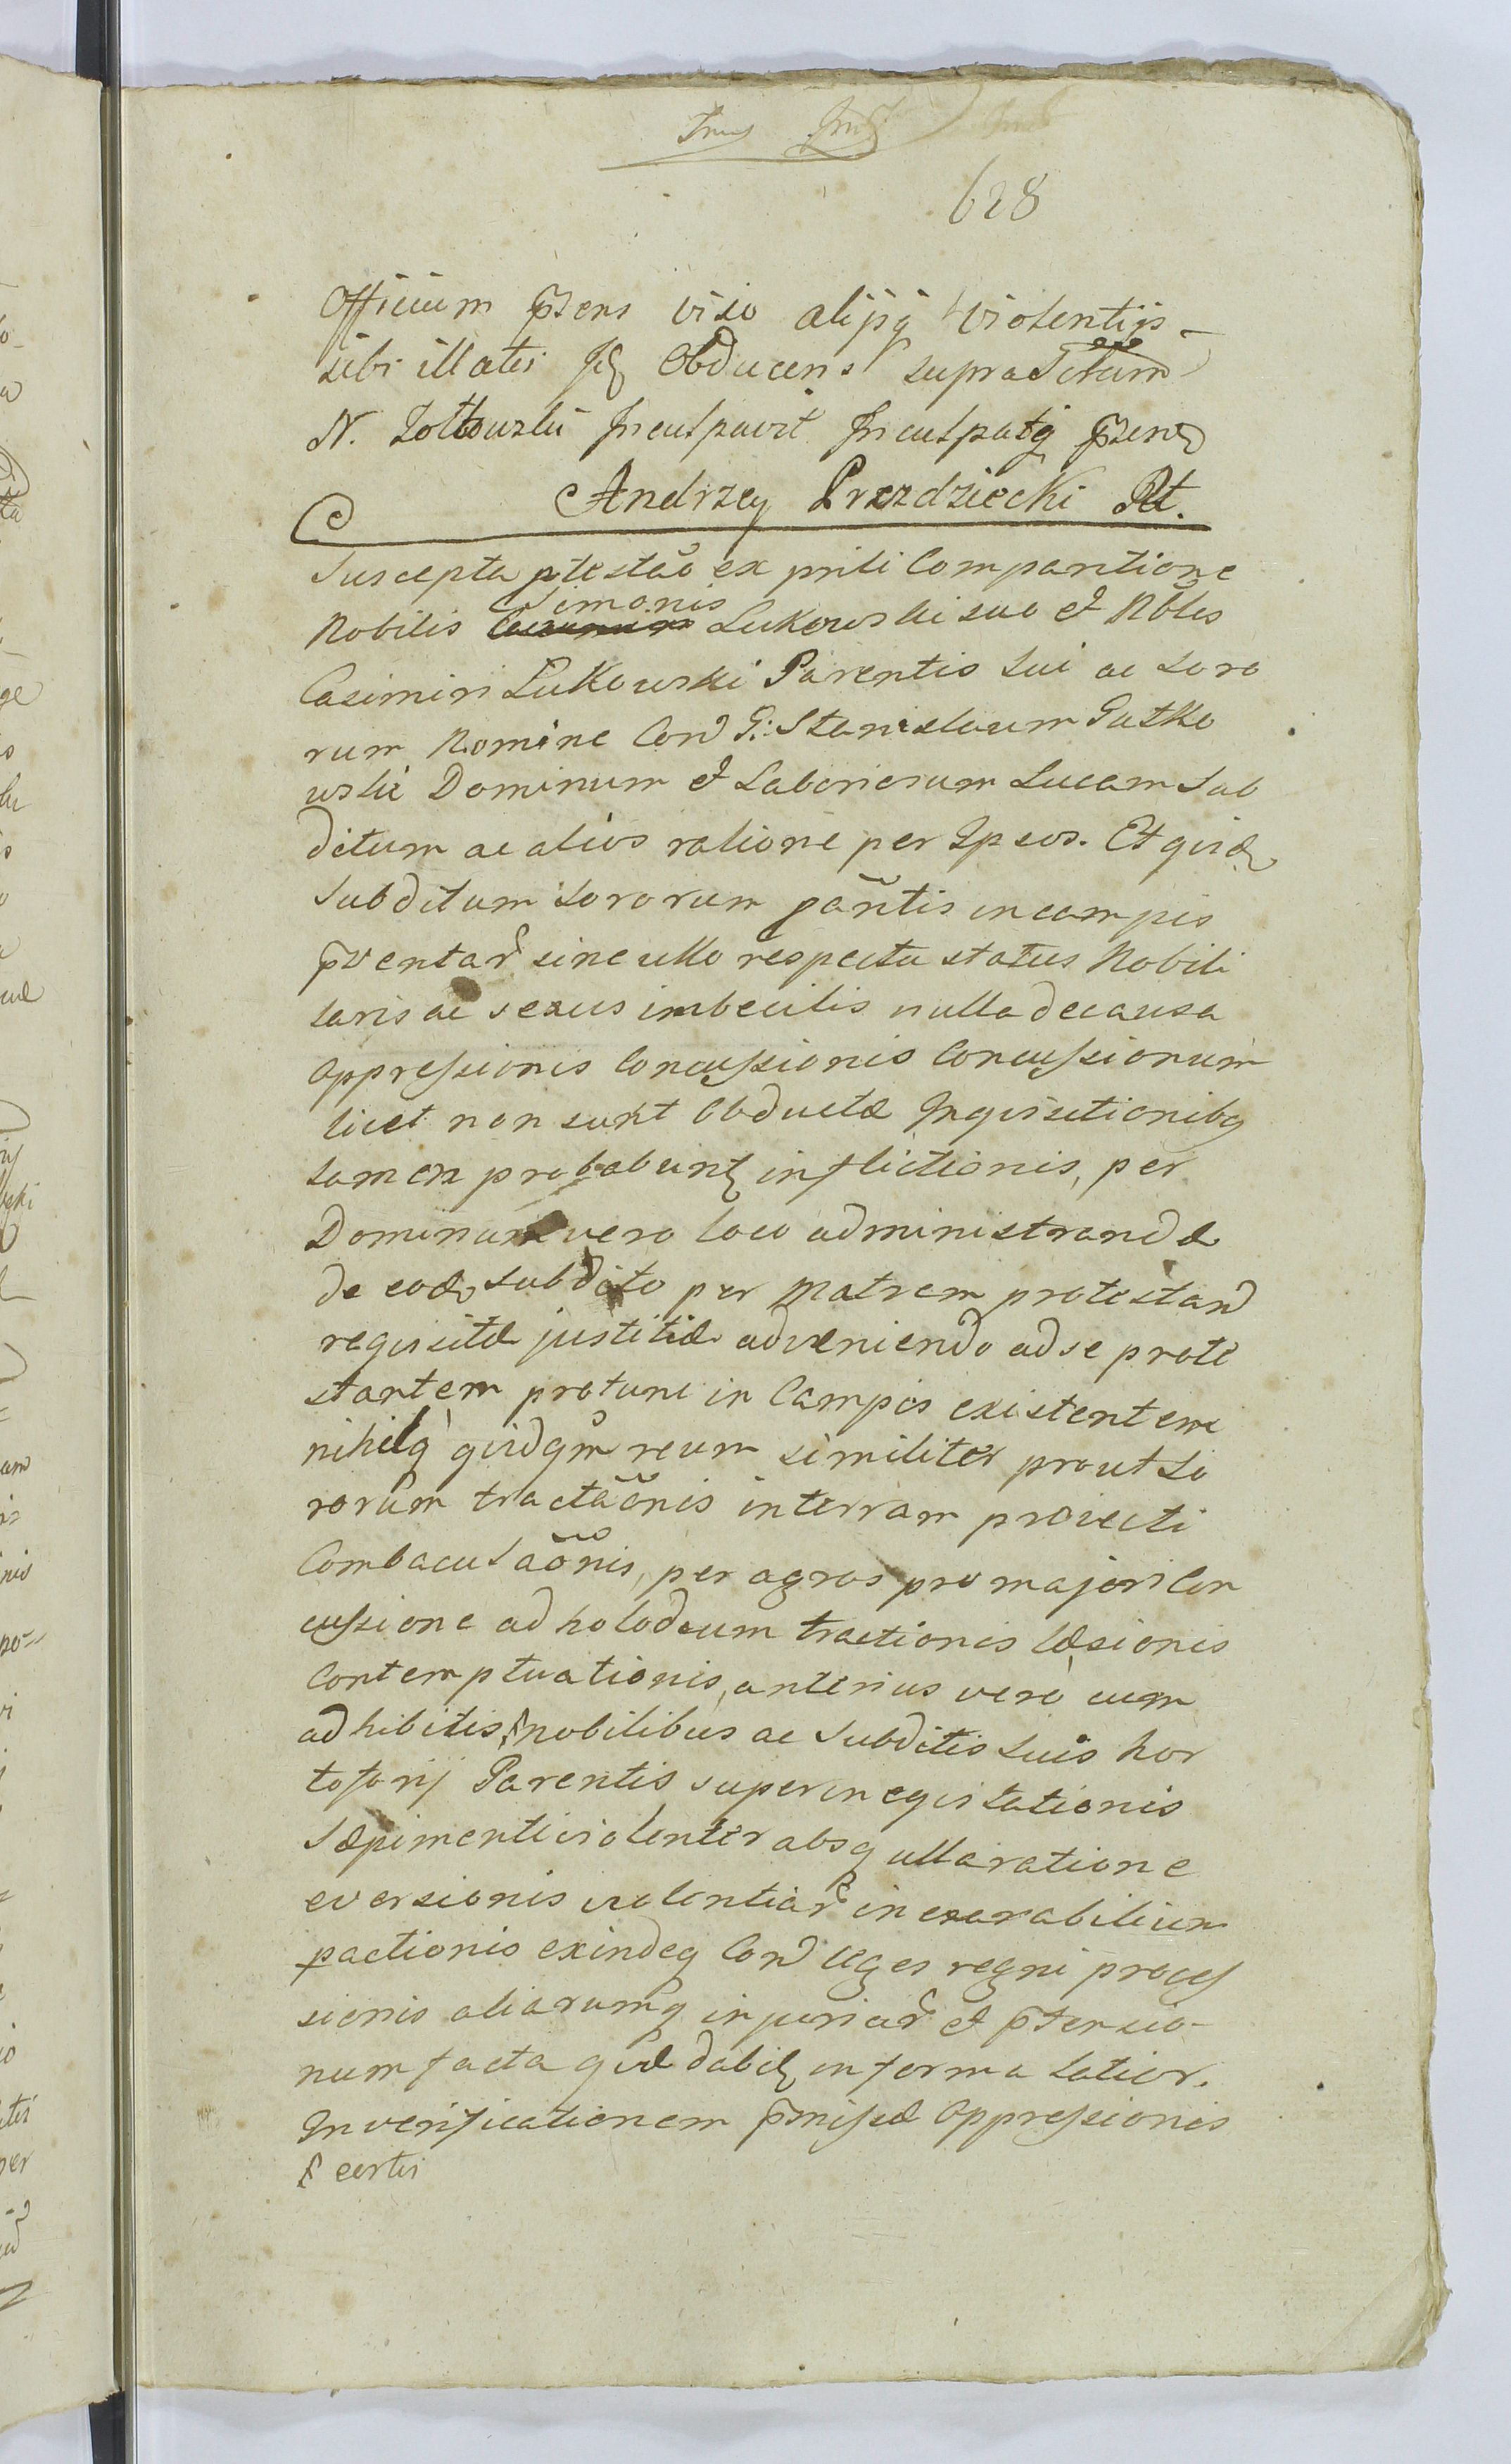 628
Officium pn̄zens viso alijsq violentijs
sibi illatis Id obducens supra dictum
N. Zołtowski Inculpavit Inculpatq pn̄zens
Andrzey Przezdziecki Rt.
Suscepta ptestaō ex prsti Comparitione
Nobilis Simonis Lukowski suo et Nōbles
Casimiri Lukowski Parentis sui ac soro
rum Nomine Con̄ G: Stanislaum Gutko
wski Dominum et Laboriosum Lucam sub
ditum ac alios ratione per Ipsos. Et quid
subditum sororum pān̄tis in campis
p̄ventar̄ sine ullo respectu status Nobili
taris ac sexus imbecilis nulla de causa
oppressionis Concussionis Concussionum
licet non sunt Obductæ Inquisitionibq
tamen probabunt inflictionis, per
Dominum vero loco administrandæ
de eod subdito per Matrem protestan̄
requisitæ justitiæ adveniendo ad se prote
stantem protunc in Campis existentem
nihilq quidqm̄ reum similiter prout so
rorum tractāōnis in terram proiecti
Combaculāōnis, per agros pro majori Con
cussione ad holodcum tractionis læsionis
Contemptuationis, anterius vero cum
adhibitis nobilibus ac subditis suis hor
tosorij Parentis super inequitationis
sæpimenti violenter absq ulla ratione
eversionis violentiar̄ inenarabilium
pactionis exindeq Con̄ leges regni proces
sionis aliarumq injuriar̄ et p̄tensio-
num facta quæ dabit in forma latior.
In verificationem p̄missæ oppressionis
& certis